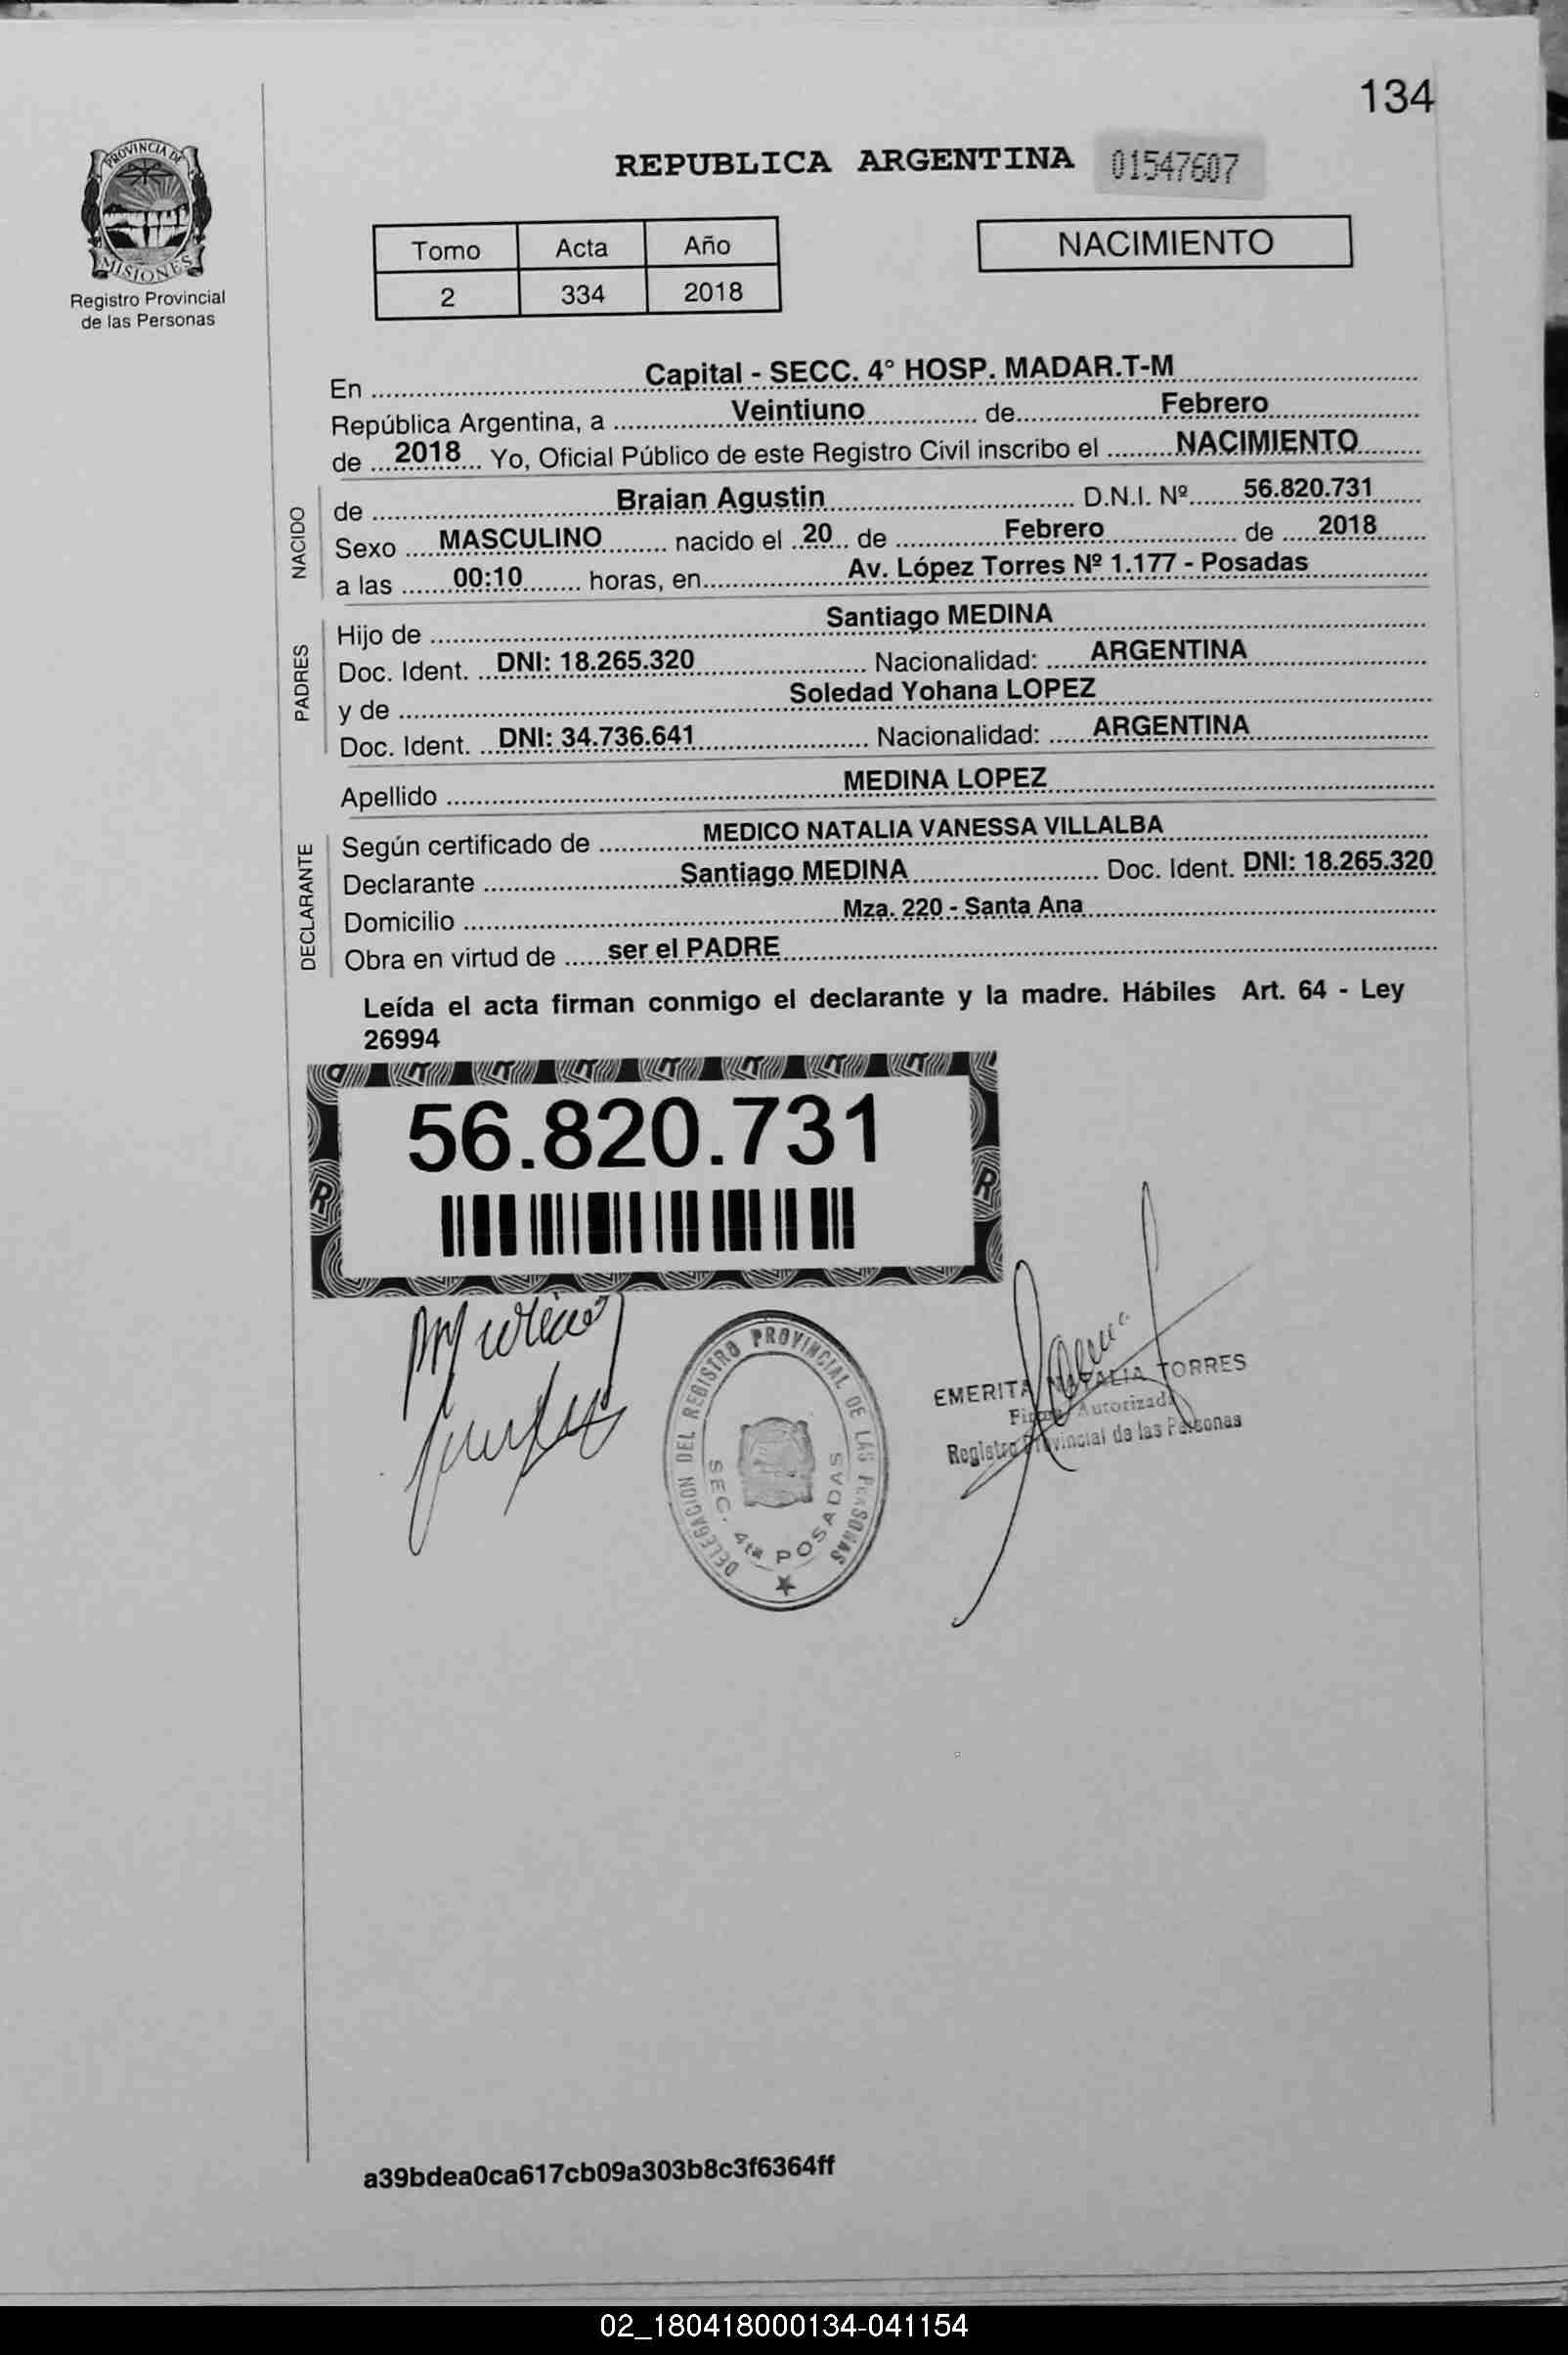 134
PROVINCIA DE
MISIONES
Registro Provincial
de las Personas
REPUBLICA ARGENTINA 01547607
Tomo Acta Año
2 334 2018
NACIMIENTO
En Capital - SECC. 4° HOSP. MADAR.T-M
República Argentina, a Veintiuno de Febrero
de 2018 Yo, Oficial Público de este Registro Civil inscribo el NACIMIENTO
NACIDO
de Braian Agustin D.N.I. Nº 56.820.731
Sexo MASCULINO nacido el 20 de Febrero de 2018
a las 00:10 horas, en Av. López Torres Nº 1.177 - Posadas
PADRES
Hijo de Santiago MEDINA
Doc. Ident. DNI: 18.265.320 Nacionalidad: ARGENTINA
y de Soledad Yohana LOPEZ
Doc. Ident. DNI: 34.736.641 Nacionalidad: ARGENTINA
Apellido MEDINA LOPEZ
DECLARANTE
Según certificado de MEDICO NATALIA VANESSA VILLALBA
Declarante Santiago MEDINA Doc. Ident. DNI: 18.265.320
Domicilio Mza. 220 - Santa Ana
Obra en virtud de ser el PADRE
Leída el acta firman conmigo el declarante y la madre. Hábiles Art. 64 - Ley
26994
56.820.731
DELEGACION DEL REGISTRO PROVINCIAL DE LAS PERSONAS
SEC. 4ta POSADAS
EMERITA NATALIA TORRES
Firma Autorizada
Registro Provincial de las Personas
a39bdea0ca617cb09a303b8c3f6364ff
02_180418000134-041154